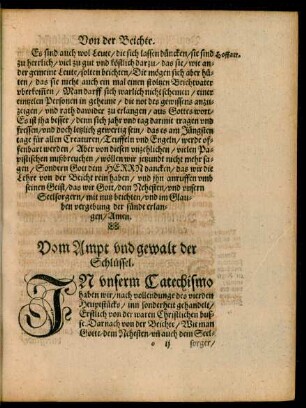 Von der Beichte.
Es sind auch wol Leute / die sich lassen düncken / sie sind
Hoffart.
zu herrlich / viel zu gut vnd köstlich darzu / das sie / wie an-
der gemeine Leute / solten beichten / Die mögen sich aber hü-
ten / das sie nicht auch ein mal einen stoltzen Beichtvater
vberkomen / Man darff sich warlich nicht schemen / einer
eintzelen Personen in geheime / die not des gewissens anzu-
zeigen / vnd rath dawider zu erlangen / aus Gottes wort.
Es ist jha besser / denn sich jahr vnd tag darmit tragen vnd
fressen / vnd doch letzlich gewertig sein / das es am Jüngsten
tage für allen Creaturen / Teuffeln vnd Engeln / werde of-
fenbart werden / Aber von diesen vnzehlichen / vielen Pa-
pistischen mißbreuchen / wöllen wir jetzundt nicht mehr sa-
gen / Sondern Gott dem HERRN dancken / das wir die
Lehre von der Beicht rein haben / vnd jhn anruffen vmb
seinen Geist / das wir Gott / dem Nehesten / vnd vnsern
Seelsorgern / mit nutz beichten / vnd im Glau-
ben vergebung der sünd erlan-
gen / Amen.
Vom Ampt vnd gewalt der
Schlüssel.
IN vnserm Catechismo
haben wir / nach vollendunge des vierden
Heuptstücks / inn sonderheit gehandelt /
Erstlich von der waren Christlichen bus-
se. Darnach von der Beichte / Wie man
Gotte / dem Nehesten / vñ auch dem Seel-
o ij
sorger /